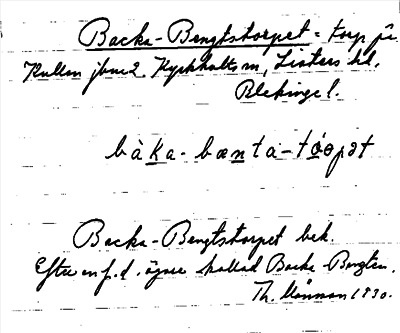 Backa-Bengtstorpet = torp på
Kullen jvm 2 Kyrkhults sn, Listers hd,
Blekinge l.
bàka-bænta-tóopət
Backa-Bengtstorpet bek.
Efter en f.d. ägare kallad Backa-Bengten.
Th. Månsson 1930.